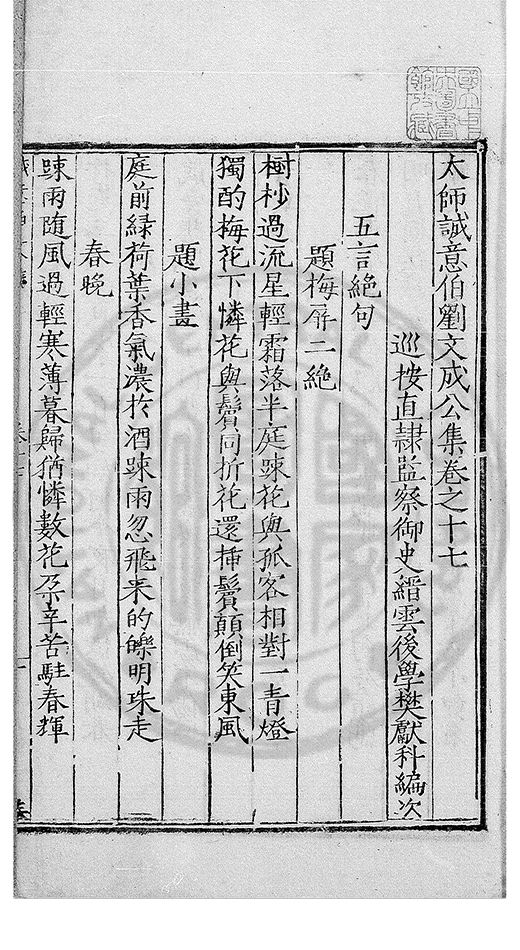 太師誠意伯劉文成公集卷之十七
巡按直隸監察御史縉雲後學樊獻科編次
五言絕句
題梅屏二絶
樹杪過流星輕霜落半庭踈花與孤客相對一青燈
獨酌梅花下憐花與鬢同折花還揷鬢顛倒笑東風
題小畫
庭前緑荷葉香氣濃於酒踈雨忽飛来的皪明珠走
春晚
踈雨随風過輕寒薄暮歸猶憐數花朶辛苦駐春輝